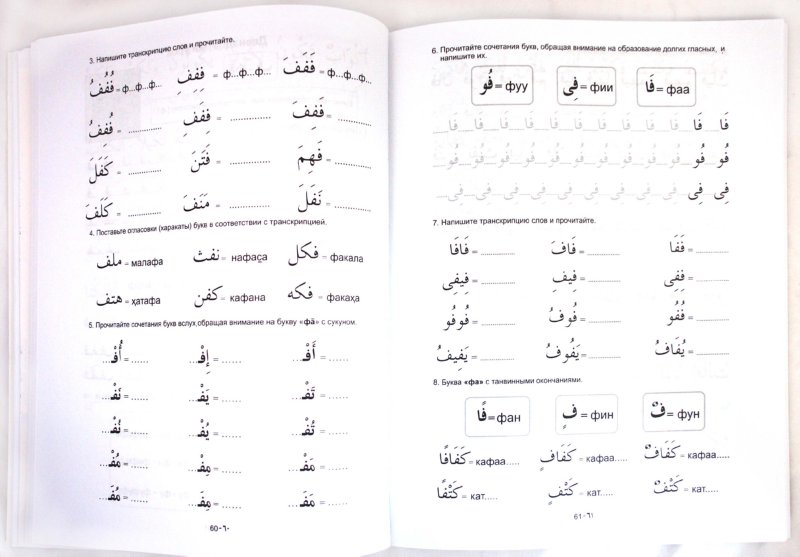 3. Напишите транскрипцию слов и прочитайте.
فُفُفُ = ф...ф...ф... فِفِفِ = ф...ф...ф... فَفَفَ = ф...ф...ф...
فُفِفُ = .............. فَفِفَ = .............. فَفِفَ = ..............
كَفَلَ = .............. فَتَنَ = .............. فَهِمَ = ..............
كَلَفَ = .............. مَنَفَ = .............. نَفَلَ = ..............
4. Поставьте огласовки (харакаты) букв в соответствии с транскрипцией.
ملف = малафа نفث = нафаса фкل = факала
هتف = ҳатафа كفن = кафана فكه = факаҳа
5. Прочитайте сочетания букв вслух, обращая внимание на букву «фа» с сукуном.
أُفْ = ...... إِفْ = ...... أَفْ = ......
نَفْـ = ...... يَفْـ = ...... تَفْـ = ......
نُفْـ = ...... يُفْـ = ...... تُفْـ = ......
مُفْـ = ...... مِفْـ = ...... مَفْـ = ......
مُفَـ = ...... مِفَـ = ...... مَفَـ = ......
60-٦٠
6. Прочитайте сочетания букв, обращая внимание на образование долгих гласных, и
напишите их.
فُو = фуу فِى = фии فَا = фаа
فَا فَا فَا فَا فَا فَا فَا فَا فَا فَا فَا فَا
فُو فُو فُو فُو فُو فُو فُو فُو فُو فُو فُو فُو
فِى فِى فِى فِى فِى فِى فِى فِى فِى فِى
7. Напишите транскрипцию слов и прочитайте.
فَافَا = .............. فَافَ = .............. فَفَا = ..............
فِيفِى = .............. فِيفِ = .............. فِفِى = ..............
فُوفُو = .............. فُوفُ = .............. فُفُو = ..............
يَفِيفُ = .............. يَفُوفُ = .............. يُفَافُ = ..............
8. Буква «фа» с танвинными окончаниями.
فًا = фан فٍ = фин فٌ = фун
كَفَافًا = кафаа..... كَفَافٍ = кафаа..... كَفَافٌ = кафаа.....
كَتْفًا = кат..... كَتْفٍ = кат..... كَتْفٌ = кат.....
61-٦١